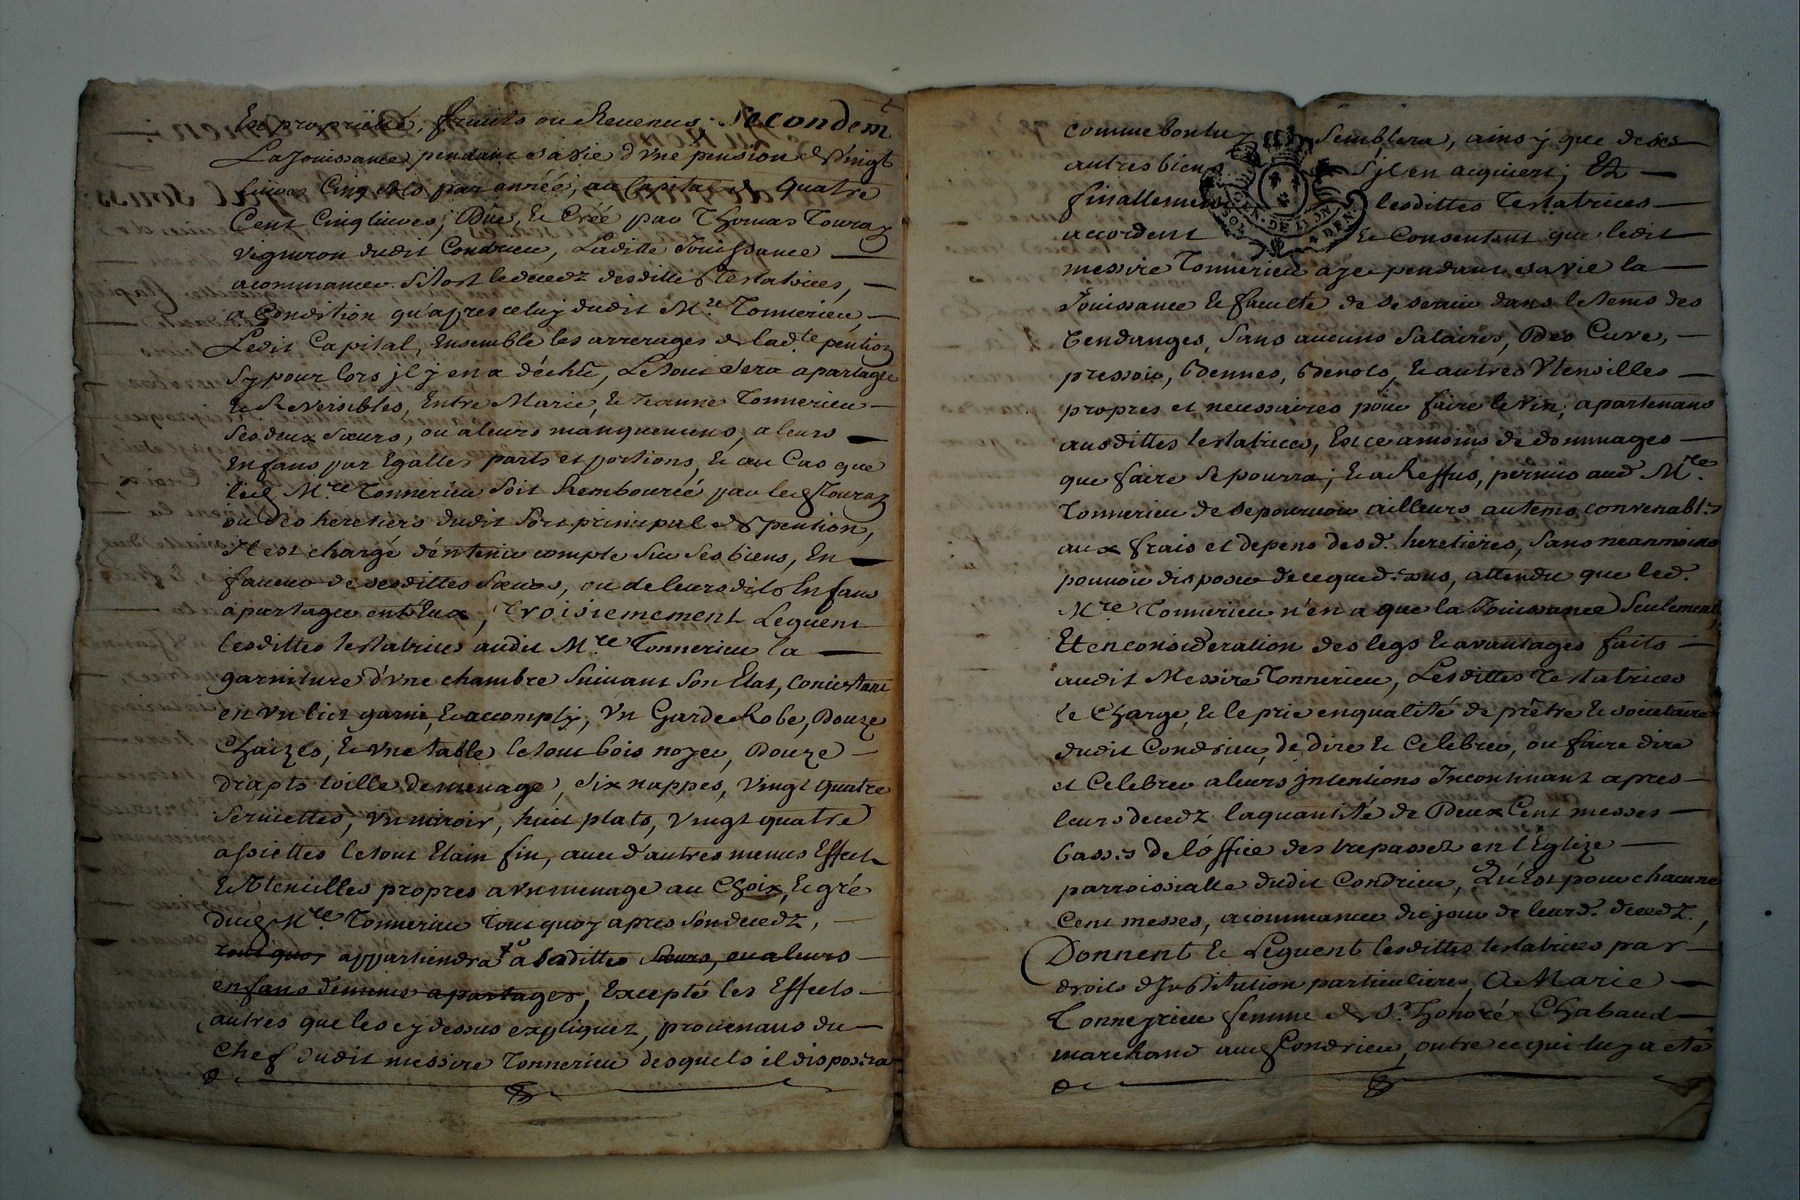 En propriété, fruits ou Revenus. Secondem.t
La Jouissance pendant sa vie d'vne pension de Vingt
livres Cinq sols par année, au Capital de Quatre
Cent Cinq livres, Düe, & Créé par Thomas Touraz
vigneron dudit Condrieu, Ladite Jouissance
a commancer sitost le decedz desdittes testatrices,
a Condition qu'apres celuy dudit M.re Tonnerieu,
Ledit Capital, ensemble les arrerages de lad.te pention
sy pour lors jl y en a d'échû, Le tout sera a partager
& Reversibles, Entre Marie, & Jeanne Tonnerieu
ses deux sœurs, ou a leurs manquemens, a leurs
enfans par Egalles parts et portions, & au Cas que
led. M.re Tonnerieu soit Remboursé par led. Touraz
ou ses heretiers dudit sort principal de pention,
Il est chargé d'en tenir compte sur ses biens, En
faveur de sesdittes sœurs, ou de leursdits Enfans
a partager entr'Eux, Troisiemement Leguent
lesdittes testatrices audit M.re Tonnerieu la
garniture d'vne chambre suivant son Etat, Consistant
en vn lict garni, & accomply, Vn Garde Robe, Douze
Chaizes, & vne table le tout bois noyer, Douze
drapts toille de menage, six nappes, Vingt quatre
serviettes, vn miroir, huit plats, Vingt quatre
assiettes le tout Etain fin, avec d'autres menus Effects
& Vtencilles propres a vn menage au Choix, & gré
dud. M.re Tonnerieu Tout quoy apres son decedz,
tout quoy appartiendra a sesdittes sœurs, ou a leurs
enfans demême a partager, Excepté les Effects
autres que les cy dessus expliquez, provenans du
Chef dudit messire Tonnerieu desquels il disposera
comme bon luy semblera, ainsy que de ses
autres biens s'jl en acquiert; Et
finallement lesdittes Testatrices
accordent & Consentent que ledit
messire Tonnerieu aye pendant sa vie la
Jouissance & faculté de se servir dans le tems des
Vendanges, sans aucuns salaires, Des Cuves,
pressoir, bennes, benots, & autres Vtensilles
propres et necessaires pour faire le vin, apartenans
ausdittes testatrices, Et ce a moins de dommages
que faire se pourra; & a Reffus, permis aud. M.re
Tonnerieu de se pourvoir ailleurs au tems convenable
aux frais et depens desd. heretieres, sans neanmoins
pouvoir disposer de ce que dessus, attendu que led.
M.re Tonnerieu n'en a que la Jouissance seulement,
Et en consideration des legs & avantages faits
audit Messire Tonnerieu, Lesdittes Testatrices
le Charge, & le prie en qualité de prêtre & societaire
dudit Condrieu, de dire & Celebrer, ou faire dire
et Celebrer a leurs jntentions Incontinant apres
leurs decedz la quantité de Deux Cent messes
basses de l'office des trepassez en l'Eglize
parroissialle dudit Condrieu, qu'est pour chacune
Cent messes, a commancer du jour de leurd. decedz,
Donnent & Leguent lesdittes testatrices par
droits d'Institution particulieres, A Marie
Tonnerieu femme de s.r honoré Chabaud
marchand aud. Condrieu, outre ce qui luy a eté